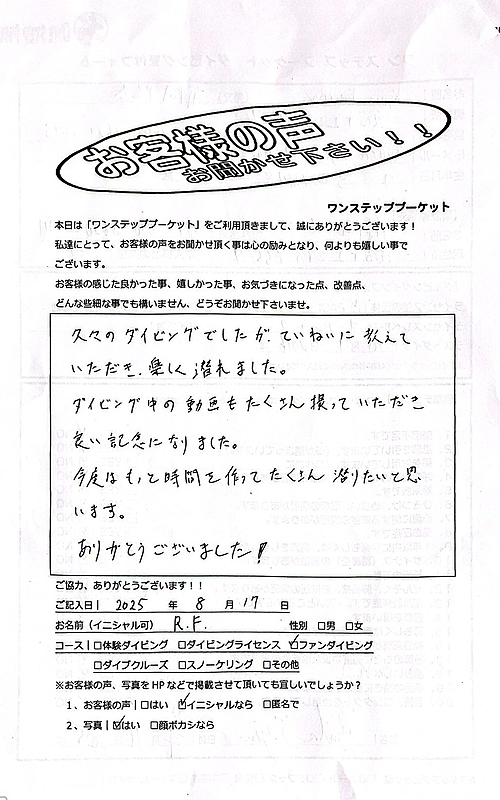 お客様の声
お聞かせ下さい！！
ワンステッププーケット
本日は「ワンステッププーケット」をご利用頂きまして、誠にありがとうございます！
私達にとって、お客様の声をお聞かせ頂く事は心の励みとなり、何よりも嬉しい事で
ございます。
お客様の感じた良かった事、嬉しかった事、お気づきになった点、改善点、
どんな些細な事でも構いません、どうぞお聞かせ下さいませ。
久々のダイビングでしたが、ていねいに教えて
いただき、楽しく潜れました。
ダイビング中の動画もたくさん撮っていただき
良い記念になりました。
今度はもっと時間を作ってたくさん潜りたいと思
います。
ありがとうございました！
ご協力、ありがとうございます！！
ご記入日| 2025 年 8 月 17 日
お名前（イニシャル可） R.F. 性別 □男 □女
コース|□体験ダイビング □ダイビングライセンス ☑ファンダイビング
□ダイブクルーズ □スノーケリング □その他
※お客様の声、写真をHPなどで掲載させて頂いても宜しいでしょうか？
1、お客様の声|□はい ☑イニシャルなら □匿名で
2、写真|☑はい □顔ボカシなら